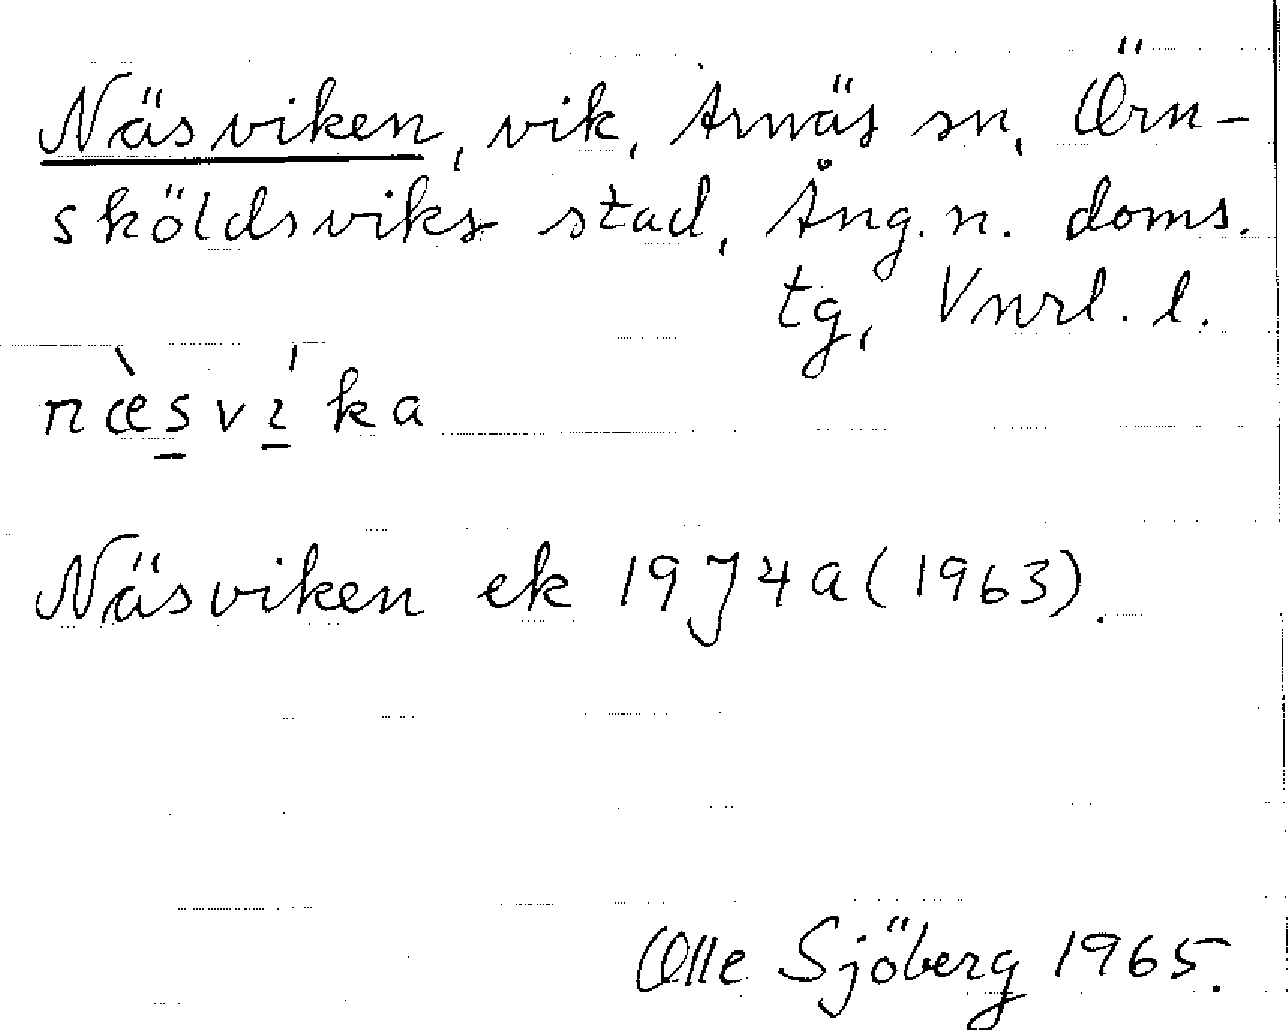 Näsviken, vik, Arnäs sn, Örn-
sköldsviks stad, Ång. n. doms.
tg, Vnrl. l.
næ̀svíka
Näsviken ek 19J4a (1963).
Olle Sjöberg 1965.